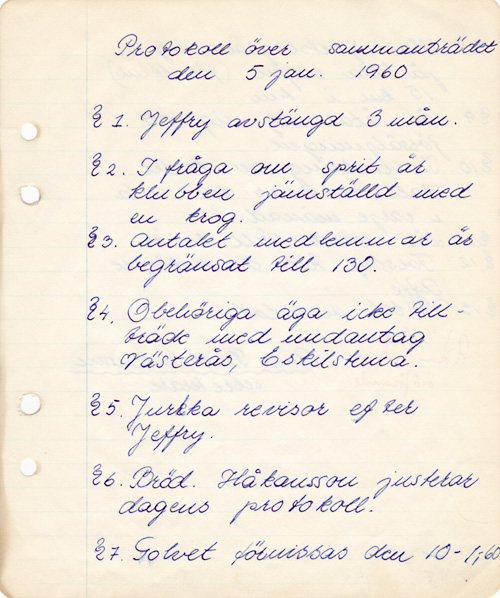 Protokoll över sammanträdet
den 5 jan. 1960
§ 1. Jeffry avstängd 3 mån.
§ 2. I fråga om sprit är
klubben jämställd med
en krog.
§ 3. Antalet medlemmar är
begränsat till 130.
§ 4. Obehöriga äga icke till-
träde med undantag
Västerås, Eskilstuna.
§ 5. Jurkka revisor efter
Jeffry.
§ 6. Bröd. Håkansson justerar
dagens protokoll.
§ 7. Golvet förnissas den 10-1,60